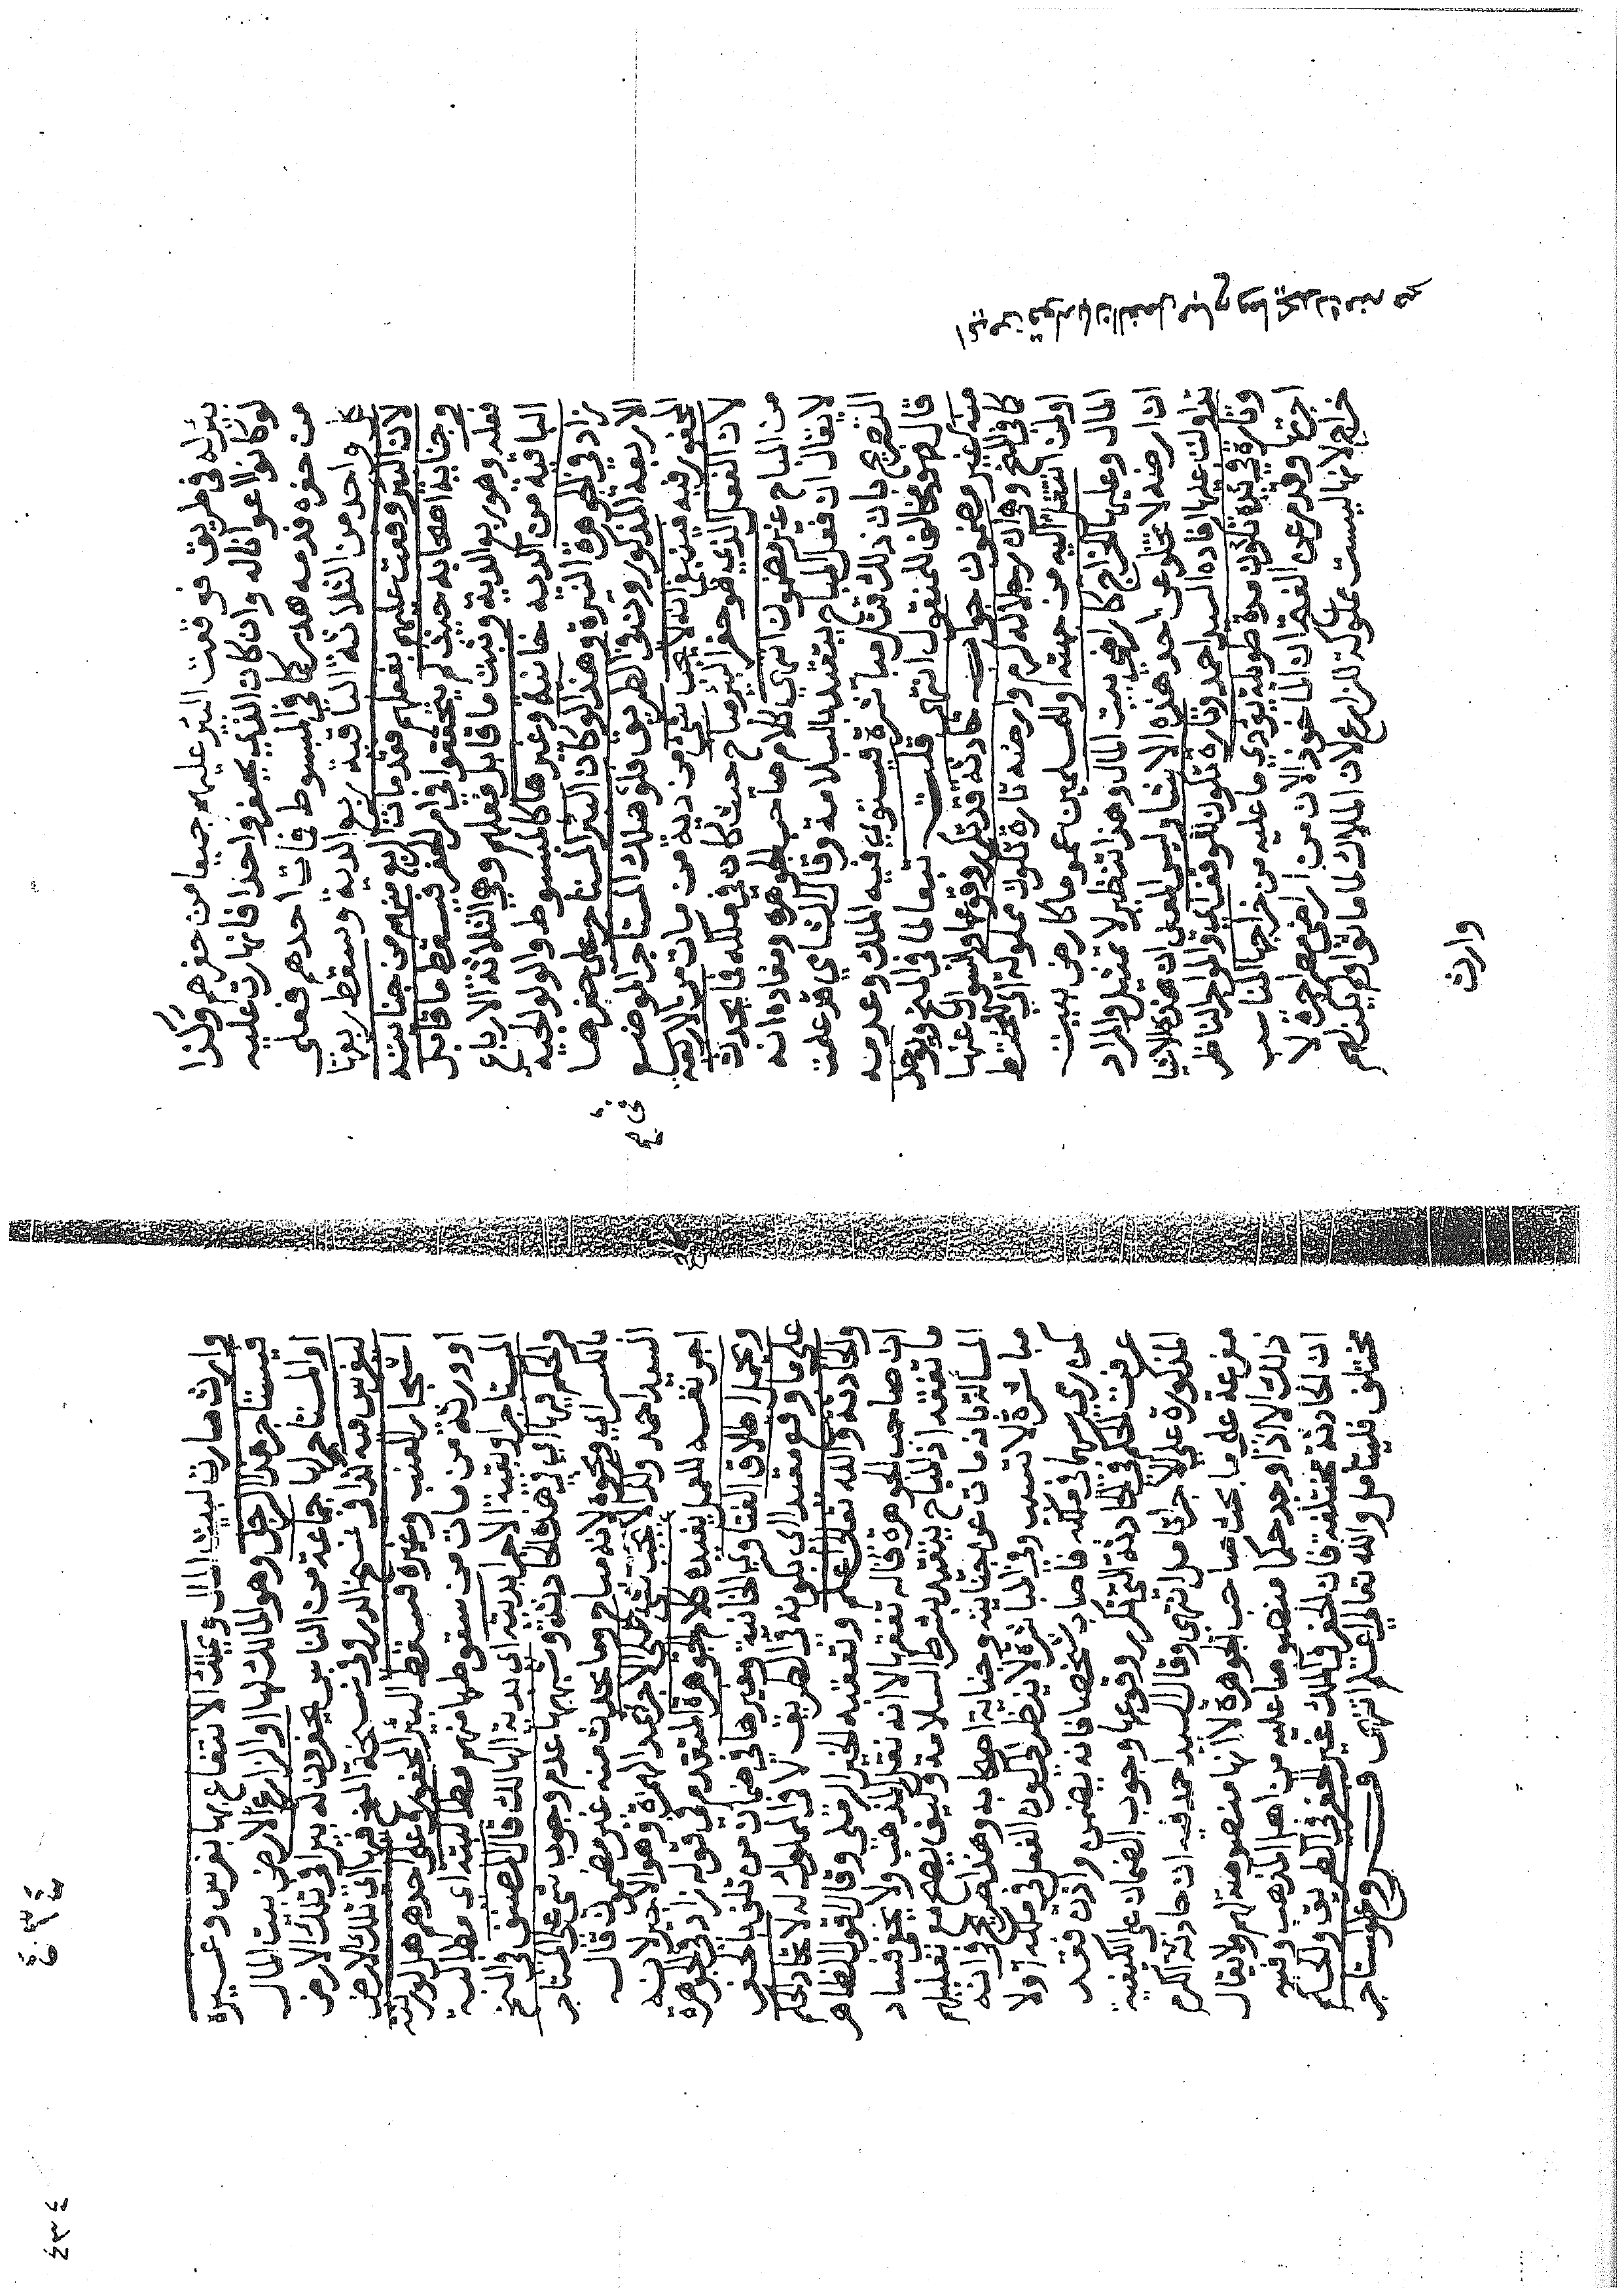 بئر له في طريق فوقعت البئر عليهم جميعا من حفرهم وكذا
لو كانوا اعوانا له وان كان الذي يحفر واحدا فانهارت عليه
من حفره فدمه هدر كما في المبسوط فمات احدهم فعلى
كل واحد من الثلاثة الباقية ربع الدية ويسقط ربعها
لان البئر وقعت عليهم بفعلهم فقد مات الرابع منهم من جنايته
وجناية اصحابه حيث لم يتحققوا في امر الحفر فيسقط ما قابل
فعله وهو ربع الدية وثبت ما قابل فعلهم وهي الثلاثة الارباع
الباقية من الدية خانية وغيرها كالمبسوط والولوالجية
زاد في الجوهرة النيرة وهذا لو كان البئر المستاجر على حفرها
الاربعة المذكورون في الطريق فلو هلك المستاجر الموضع
المحفور فيه فينبغي ان لا يجب شيء من دية من مات من الاربعة
لان الفعل الذي هو حفر البئر مباح حيث كان في ملكه فما يحدث
من المباح غير مضمون انتهى كلام صاحب الجوهرة ومفاده انه
لا يقال ان فعل المباح يتقيد بالسلامة وقال الشامي قد علمت
التصريح بان ذلك قتل مباشرة فيستوي فيه الملك وعدمه
ومخالف للمنقول انتهى قلت تبعا لما في المنح ويوخذ
منه غير مضمون جواب حادثة قد تكرر وقوعها والسؤال عنها
كما في المنح وهي ان رجلا له كرم وارضه تارة تكون مملوكة اي مختصة
او لمن انتقل اليه من جهته او للمسلمين عموما كارض بيت
المال وعليها الخراج كاراضي بيت المال وهذا تنظير لا تمثيل والمراد
ان ارضه لا تخلو عن احد هذه الاشيا وليس المعنى ان هذه الاشيا
يتداولون عليها افاده السيد احمد وتارة تكون للوقف اي والمواجر الناظر
وتارة في يده تكون مدة طويلة يؤدي ما عليه من خراجها المناسب
اجرتها وقدم عن الفتح ان الماخوذ الان من اراضي مصر اجرة لا
خراج لانها ليست مملوكة للزارع لان الملاك لما ماتوا ولم يكن لهم
وارث
وارث صارت لبيت المال ويملك الانتفاع بها بغرس وغيره
فيستاجر هذا الرجل وهو المالك لها او الزارع لارض بيت المال
او المستاجر لها جماعة من الناس يحفرون له بئرا في تلك الارض
ليغرس فيه كذا في نسخ الدر وفي نسخة المنح فيها اي تلك الارض
اشجار العنب وغيره فسقط البئر المحفور على احدهم هل لورثته
او ورثة من مات من سقوطها منهم مطالبته اي مطالبة
المستاجر او بقية الاجراء بديته اي بدية الهالك قال المصنف في المنح
والحكم فيها اي في هذه الحادثة وشبهها عدم وجوب شيء على المستاجر
بالكسر اي ونحوه لانه مباح وما يحدث منه غير مضمون قال
السيد احمد وكذا لا يجب شيء على الاجراء بمد الهمزة وهو الاجير لانه
اجر نفسه للعمل يفيده كلام الجوهرة المتقدم في قوله زاد في الجوهرة
ويحمل اطلاق الفتاوى الخانية وغيرها في ضمان من تلف بالحفر
على ما وقع مقيدا اي بكونه في الطريق لا في المملوك له لاتحاد الحكم
والحادثة والله تعالى اعلم وتعقبه الخير الرملي وقال القول الظاهر
ان صاحب الجوهرة قاله تفقها لا انه نقل المذهب ولا يخفى فساد
ما تفقه اذ المباح يتقيد بشرط السلامة وكيف يصح مع تعليلهم
المسالة بانه مات عن جنايته وجناية اصحابه وهذا صريح في انه
مباشرة لا تسبب وفي المباشرة لا ينظر الى كون الفعل في ملكه او لا
كمن رمى سهما في ملكه فاصاب شخصا فانه يضمن واذن فقد
عرفت الحكم في الحادثة التي تكرر وقوعها وجوب الضمان على الكيفية
المذكورة على الاجراء تامل انتهى وقال السيد احمد فيه ان حادثة الكرم
مفرعة على ما بحث صاحب الجوهرة لا انها منصوصة لهم ولا يقال
ذلك الا اذا وجد حكما منصوصا عليه من اهل المذهب وفيه
ان الحادثة مختلفة فان الحفر في الملك غير الحفر في الطريق والحكم
مختلف فليتامل والله تعالى اعلم انتهى فروع لو استاجر
٤٣٤